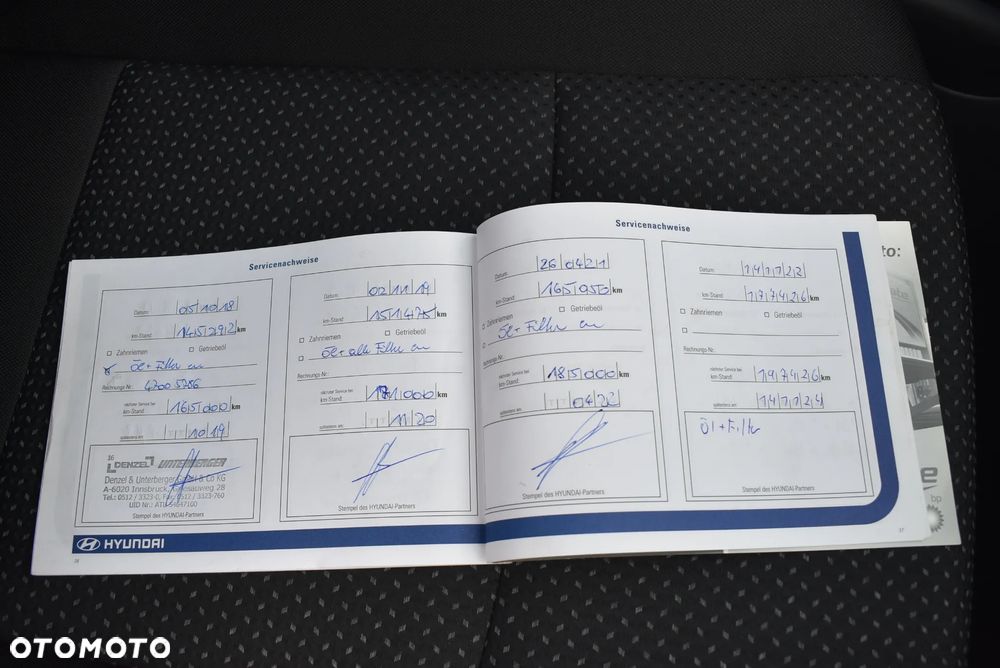 Servicenachweise
Datum: 05 10 18
km-Stand: 145292 km
Zahnriemen Getriebeöl
Öl + Filter
Rechnungs-Nr.: 42005786
nächster Service bei
km-Stand: 165000 km
spätestens am: 10 19
16
DENZEL UNTERBERGER
Denzel & Unterberger GmbH & Co KG
A-6020 Innsbruck, 28
Tel.: 0512 / 3323-0, Fax: 0512 / 3323-760
UID Nr.:
Stempel des HYUNDAI-Partners
Datum: 02 11 19
km-Stand: 151475 km
Zahnriemen Getriebeöl
Öl + alle Filter
Rechnungs-Nr.:
nächster Service bei
km-Stand: 171000 km
spätestens am: 11 20
Stempel des HYUNDAI-Partners
HYUNDAI
36
Servicenachweise
Datum: 26 04 21
km-Stand: 165050 km
Zahnriemen Getriebeöl
Öl + Filter
Rechnungs-Nr.:
nächster Service bei
km-Stand: 185000 km
spätestens am: 04 22
Stempel des HYUNDAI-Partners
Datum: 14 11 22
km-Stand: 177426 km
Zahnriemen Getriebeöl
Rechnungs-Nr.:
nächster Service bei
km-Stand: 197426 km
spätestens am: 14 11 24
Öl + Filter
Stempel des HYUNDAI-Partners
37
to:
e
bp
OTOMOTO